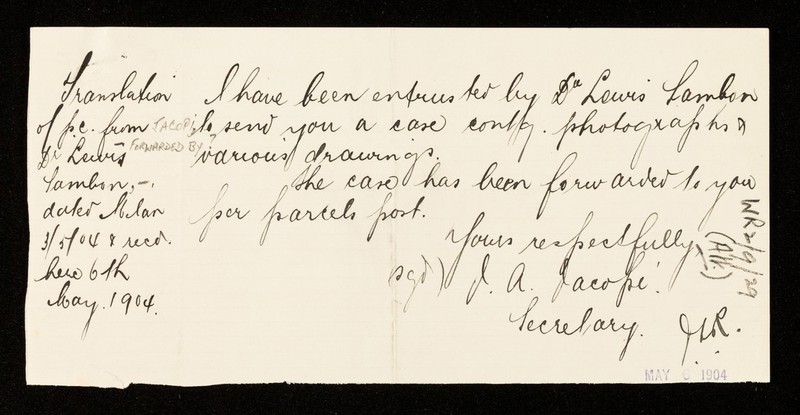 Translation
of p.c. from JACOPI
FORWARDED BY
Dr Lewis
Sambon,-.
dated Milan
3/5/04 & recd.
here 6th
May. 1904.
I have been entrusted by Dr Lewis Sambon
to send you a case contg. photographs &
various drawings.
The case has been forwarded to you
per parcels post.
Yours respectfully
sgd) J. A. Jacopi.
Secretary.
MAY 6 1904
WR2/9/29
(Att.)